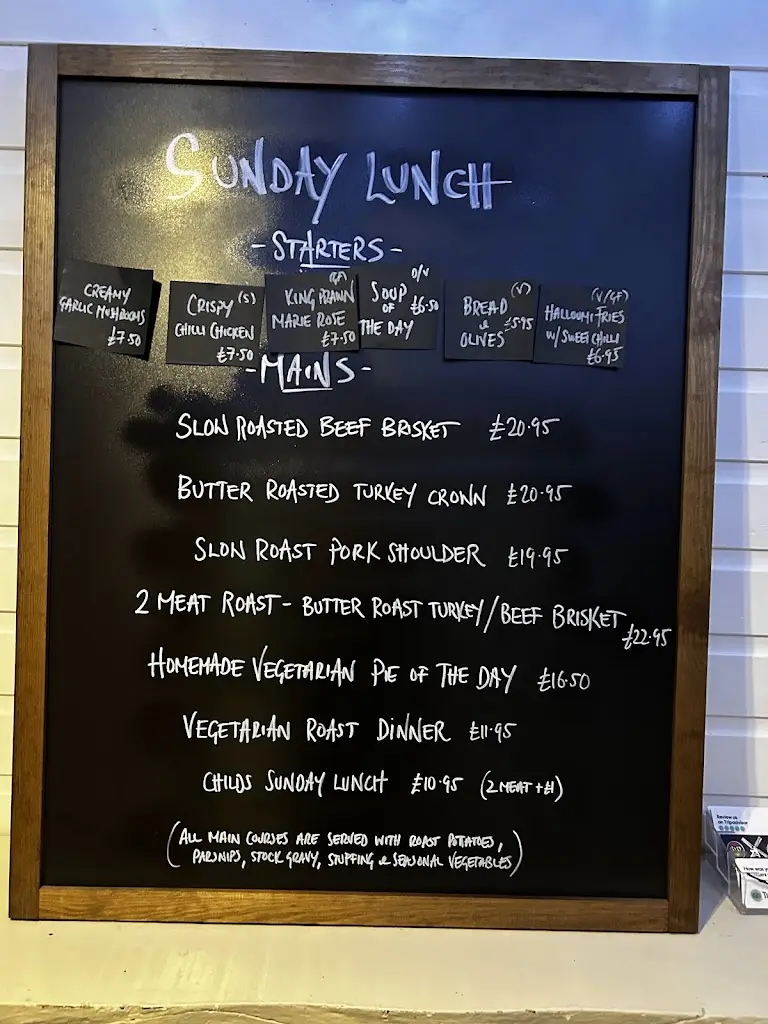 SUNDAY LUNCH
-STARTERS-
CREAMY
GARLIC MUSHROOMS
£7.50
CRISPY (S)
CHILLI CHICKEN
£7.50
(GF)
KING PRAWN
MARIE ROSE
£7.50
D/V
SOUP
OF £6.50
THE DAY
(V)
BREAD
& £5.95
OLIVES
(V/GF)
HALLOUMI FRIES
W/ SWEET CHILLI
£6.95
-MAINS-
SLOW ROASTED BEEF BRISKET £20.95
BUTTER ROASTED TURKEY CROWN £20.95
SLOW ROAST PORK SHOULDER £19.95
2 MEAT ROAST - BUTTER ROAST TURKEY/BEEF BRISKET
£22.95
HOMEMADE VEGETARIAN PIE OF THE DAY £16.50
VEGETARIAN ROAST DINNER £11.95
CHILDS SUNDAY LUNCH £10.95 (2 MEAT +£1)
(ALL MAIN COURSES ARE SERVED WITH ROAST POTATOES,
PARSNIPS, STOCK GRAVY, STUFFING & SEASONAL VEGETABLES)
Review us
on Tripadvisor
How was